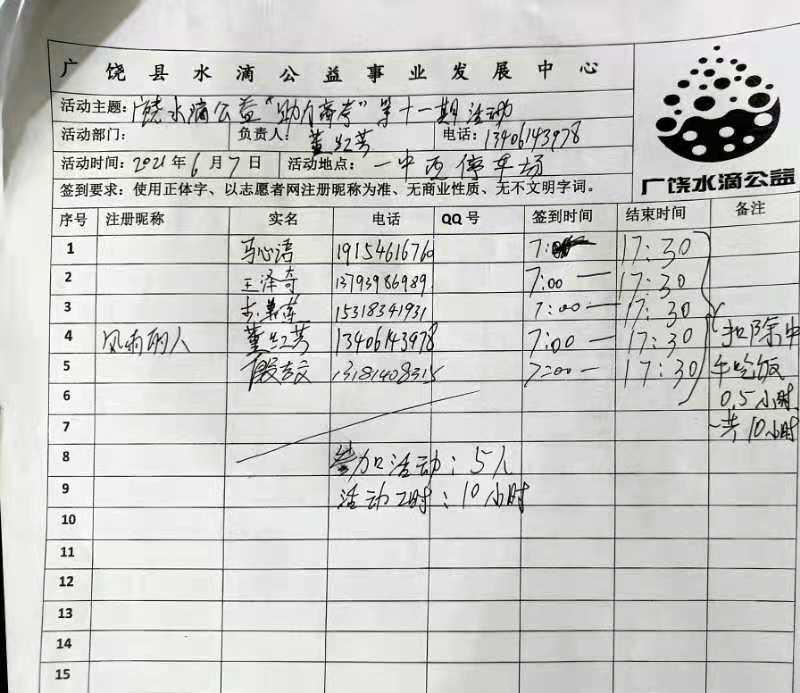 广饶县水滴公益事业发展中心
活动主题：广饶水滴公益"助力高考"第十一期活动
活动部门： 负责人：董红芳 电话：13406143978
活动时间：2021年6月7日 活动地点：一中西停车场
签到要求：使用正体字、以志愿者网注册昵称为准、无商业性质、无不文明字词。
广饶水滴公益
序号 注册昵称 实名 电话 QQ号 签到时间 结束时间 备注
1 马心语 19154616760 7:00 17:30
2 王泽奇 13793986989 7:00 — 17:30
3 15318341931 7:00 — 17:30
4 风雨的人 董红芳 13406143978 7:00 — 17:30 扣除中
5 殷吉文 13181408315 7:00 — 17:30 午吃饭
6 0.5小时
7 一共10小时
8 参加活动：5人
9 活动工时：10小时
10
11
12
13
14
15